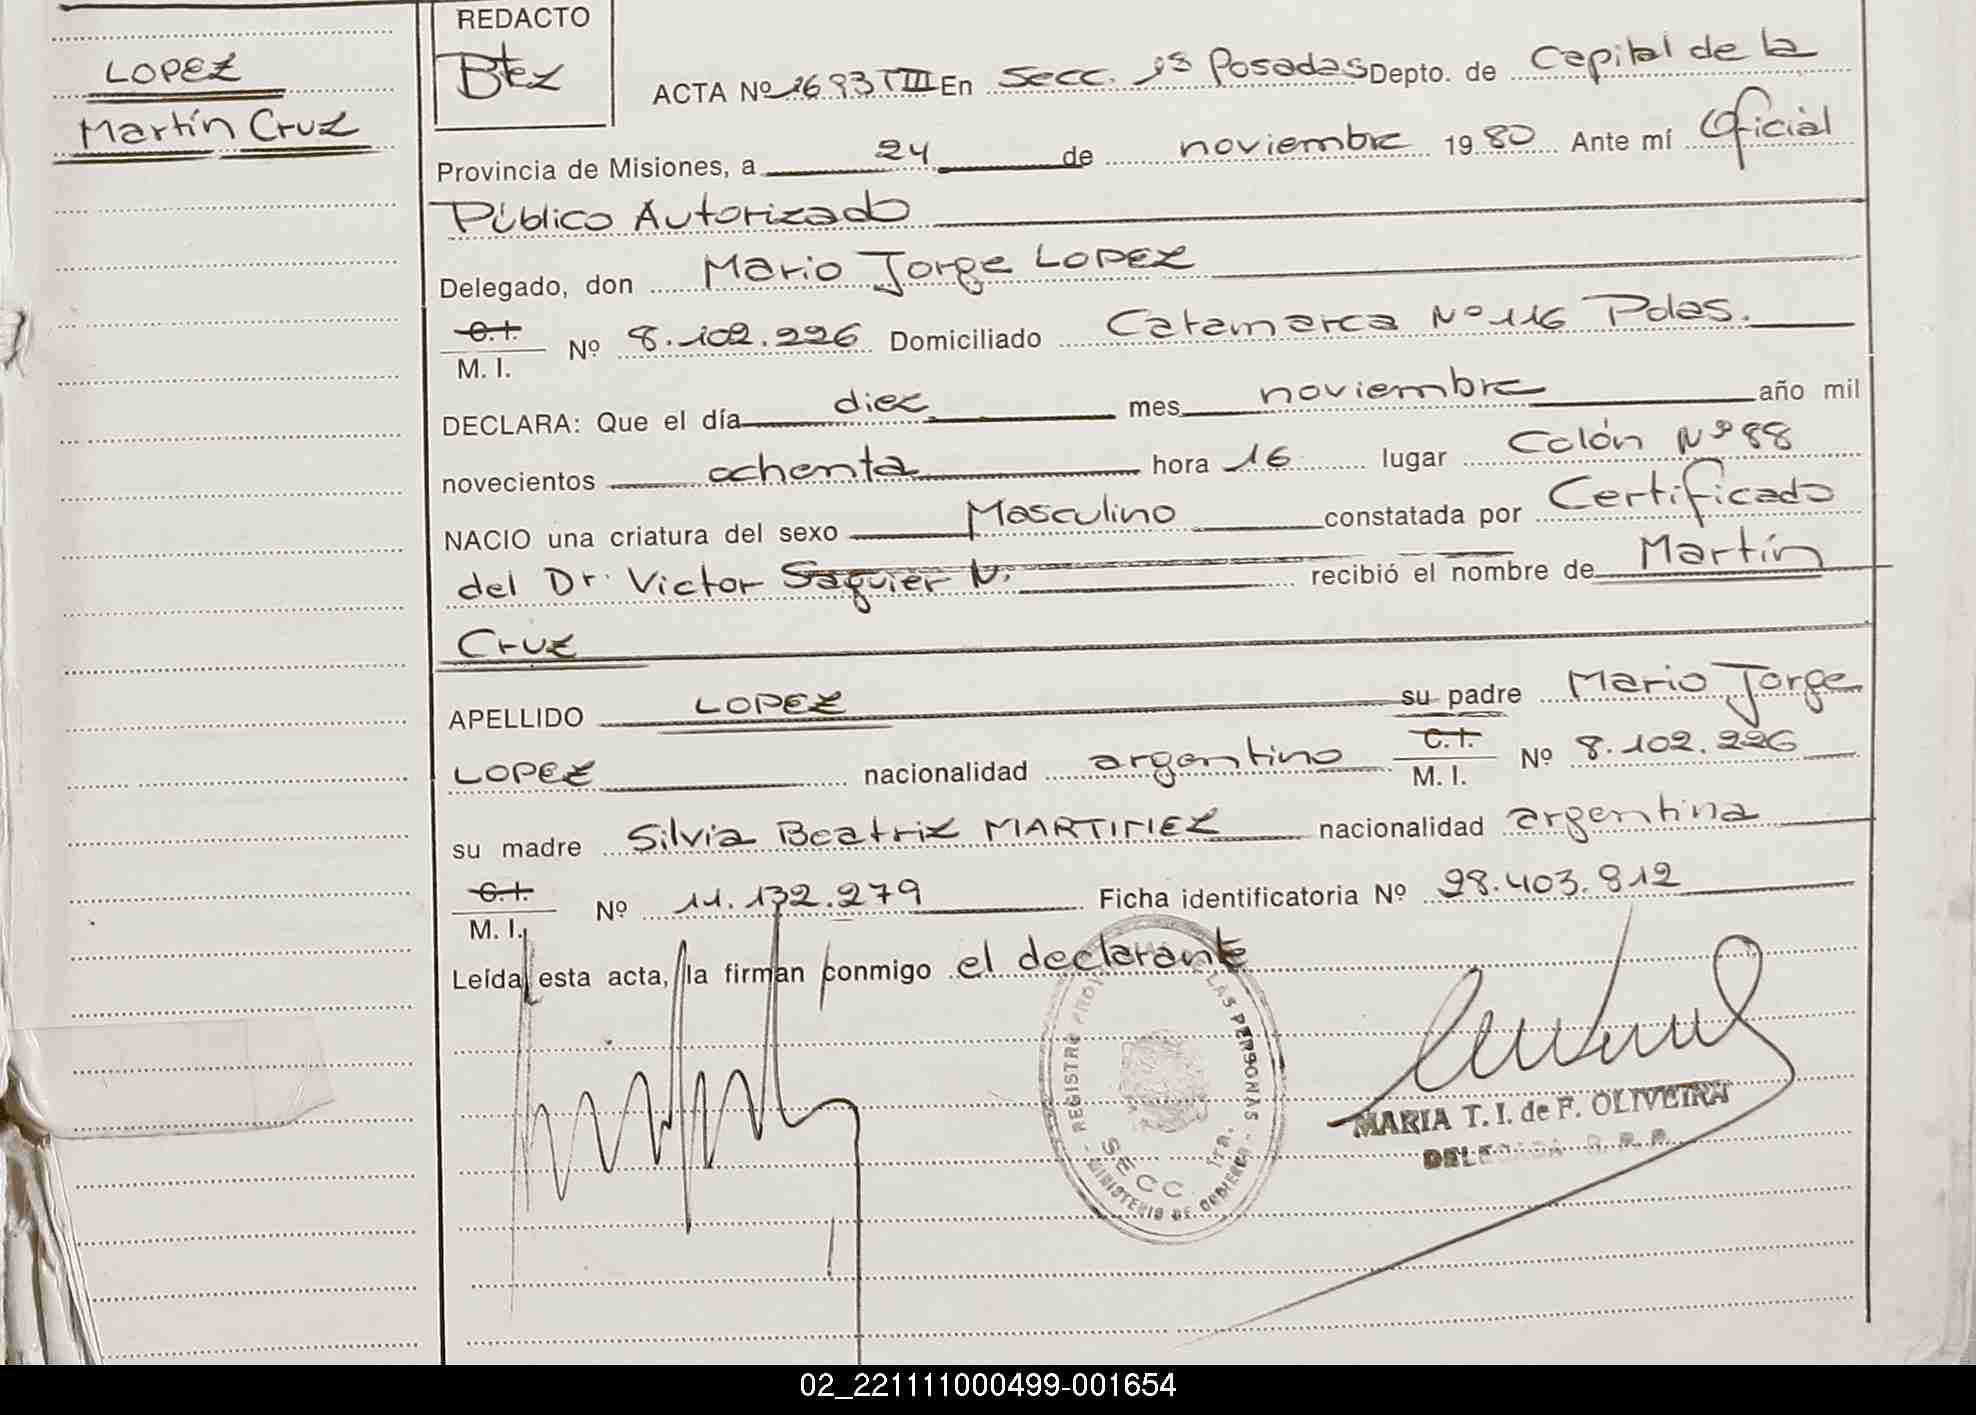 LOPEZ
Martín Cruz
REDACTO
Btez
ACTA Nº 1693 TIII En Secc. 1ª Posadas Depto. de Capital de la
Provincia de Misiones, a 24 de noviembre 1980 Ante mí Oficial
Público Autorizado
Delegado, don Mario Jorge LOPEZ
C.I.
M. I. Nº 8.102.226 Domiciliado Catamarca Nº 116 Pdas.
DECLARA: Que el día diez mes noviembre año mil
novecientos ochenta hora 16 lugar Colón Nº 88
NACIO una criatura del sexo Masculino constatada por Certificado
del Dr. Victor Saguier N. recibió el nombre de Martín
Cruz
APELLIDO LOPEZ su padre Mario Jorge
LOPEZ nacionalidad argentino C.I. M. I. Nº 8.102.226
su madre Silvia Beatriz MARTINEZ nacionalidad argentina
C.I.
M. I. Nº 11.132.279 Ficha identificatoria Nº 28.403.812
Leída esta acta, la firman conmigo el declarante
REGISTRO PROV LAS PERSONAS
MINISTERIO DE GOBIERNO
SECC. 1ra.
MARIA T. I. de F. OLIVEIRA
DELEGADA R.P.P.
02_221111000499-001654